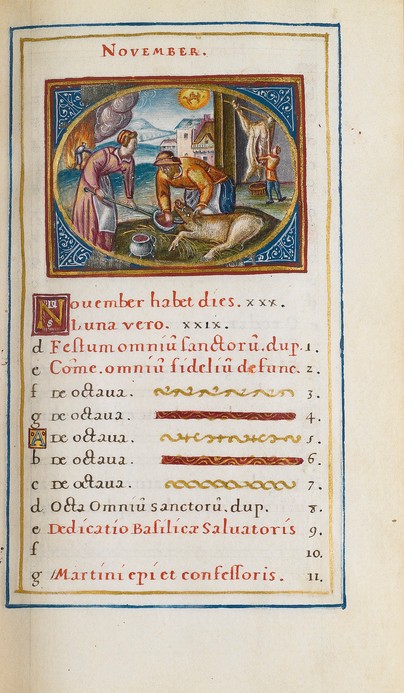 November.
November habet dies. xxx.
Luna vero. xxix.
d Festum omniū sanctorū. dup. 1.
e Cōme. omniū fideliū defunc. 2.
f De octava. 3.
g De octava. 4.
A De octava. 5.
b De octava. 6.
c De octava. 7.
d Octa Omniū sanctorū. dup. 8.
e Dedicatio Basilicæ Salvatoris 9.
f 10.
g Martini epi et confessoris. 11.